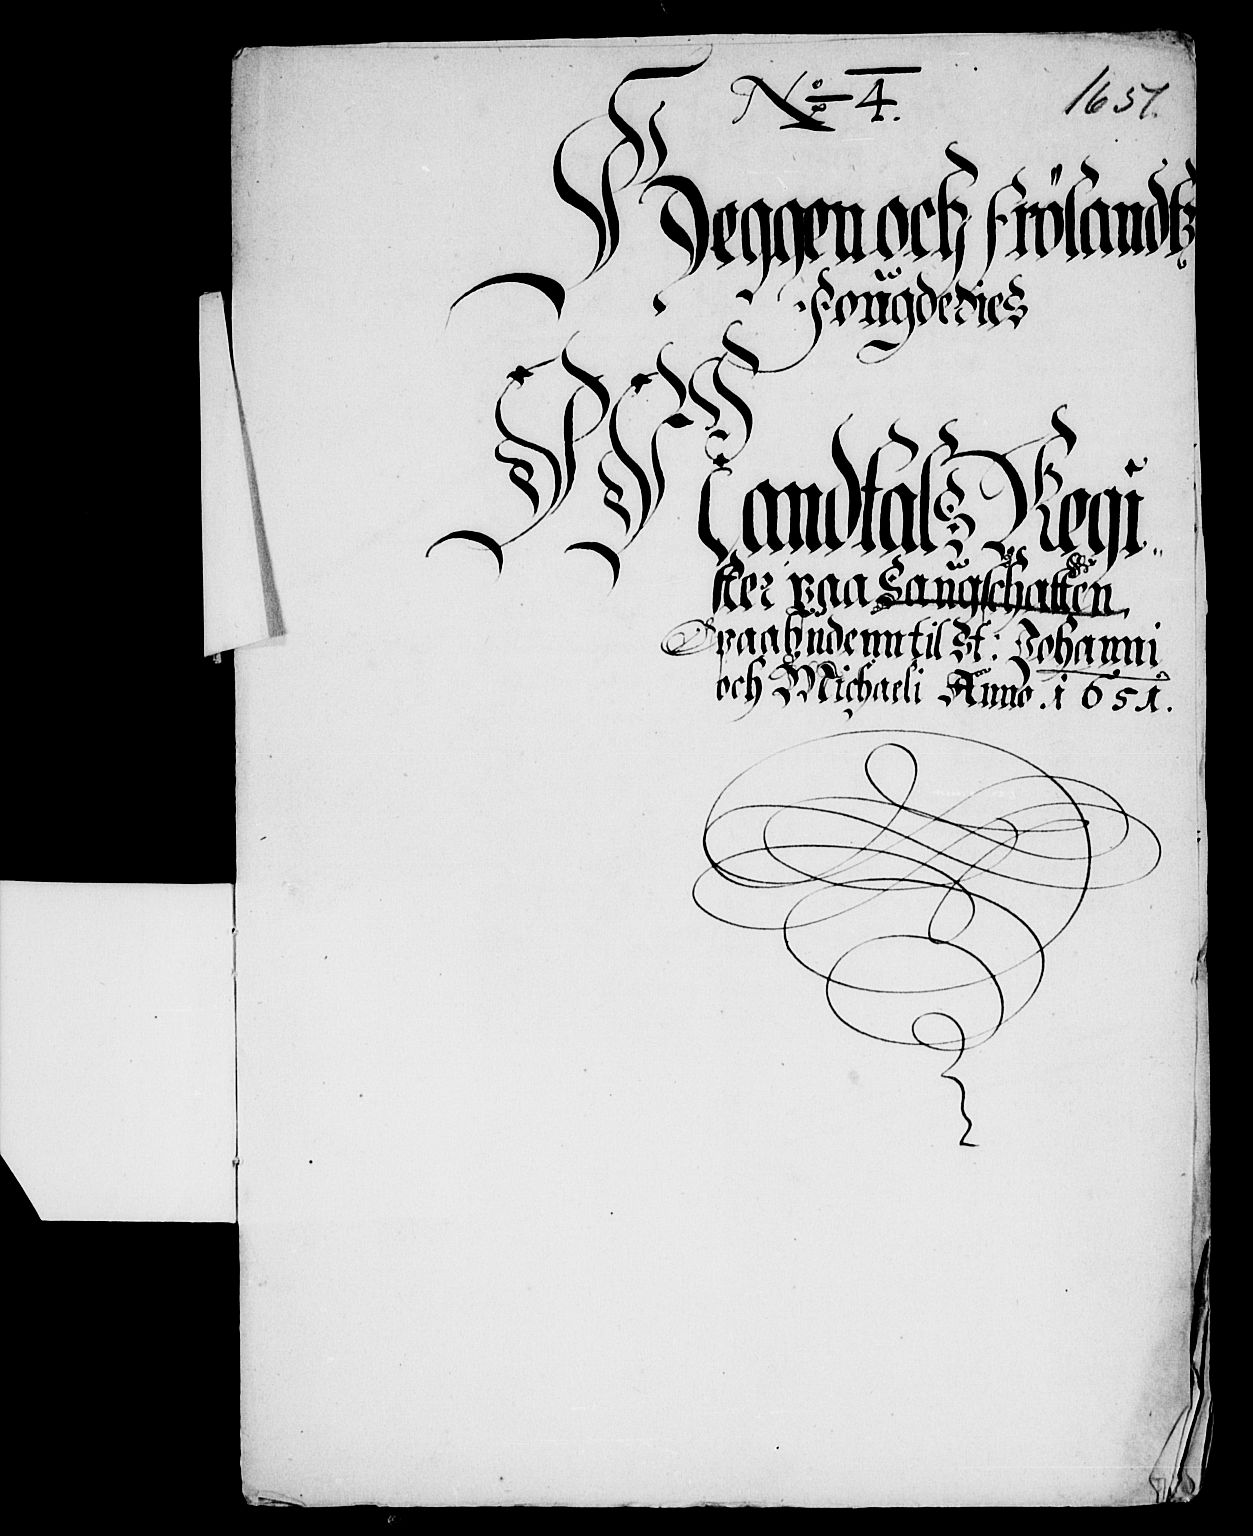 No 4. 1651.
Heggen och Frölandtz
Fougderies
Mandtals Regi
ster paa Saugschatten
paabudenn til St: Johanni
och Michaeli Anno. 1651.